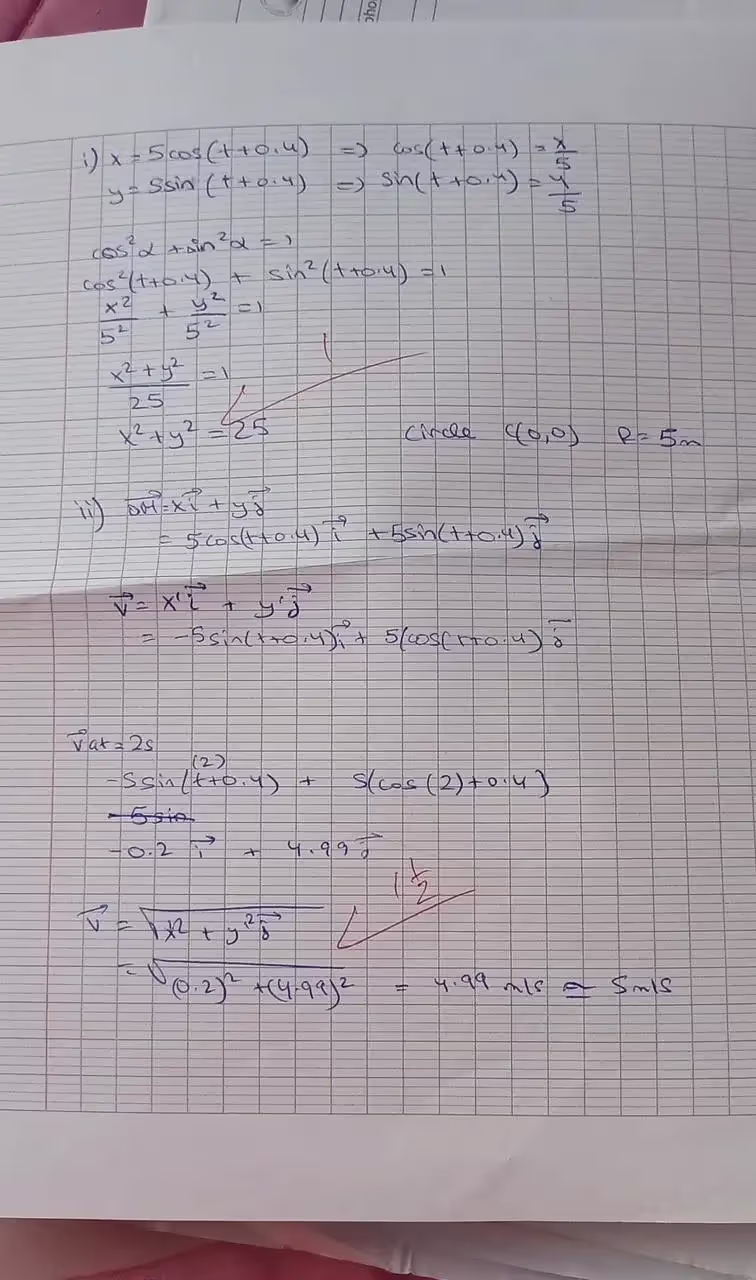 i) x = 5cos(t+0.4) => cos(t+0.4) = x/5
y = 5sin(t+0.4) => sin(t+0.4) = y/5
cos²α + sin²α = 1
cos²(t+0.4) + sin²(t+0.4) = 1
x²/5² + y²/5² = 1
(x² + y²)/25 = 1
1
x² + y² = 25 Circle C(0,0) R = 5m
ii) OM⃗ = xi⃗ + yj⃗
= 5cos(t+0.4)i⃗ + 5sin(t+0.4)j⃗
v⃗ = x'i⃗ + y'j⃗
= -5sin(t+0.4)i⃗ + 5(cos(t+0.4)j⃗
v⃗ at = 2s
(2)
-5sin(t+0.4) + 5(cos(2)+0.4)
-5sin
-0.2 i⃗ + 4.99j⃗
1 1/2
v⃗ = √x² + y'²j⃗
= √(0.2)² + (4.99)² = 4.99 m/s ≃ 5m/s